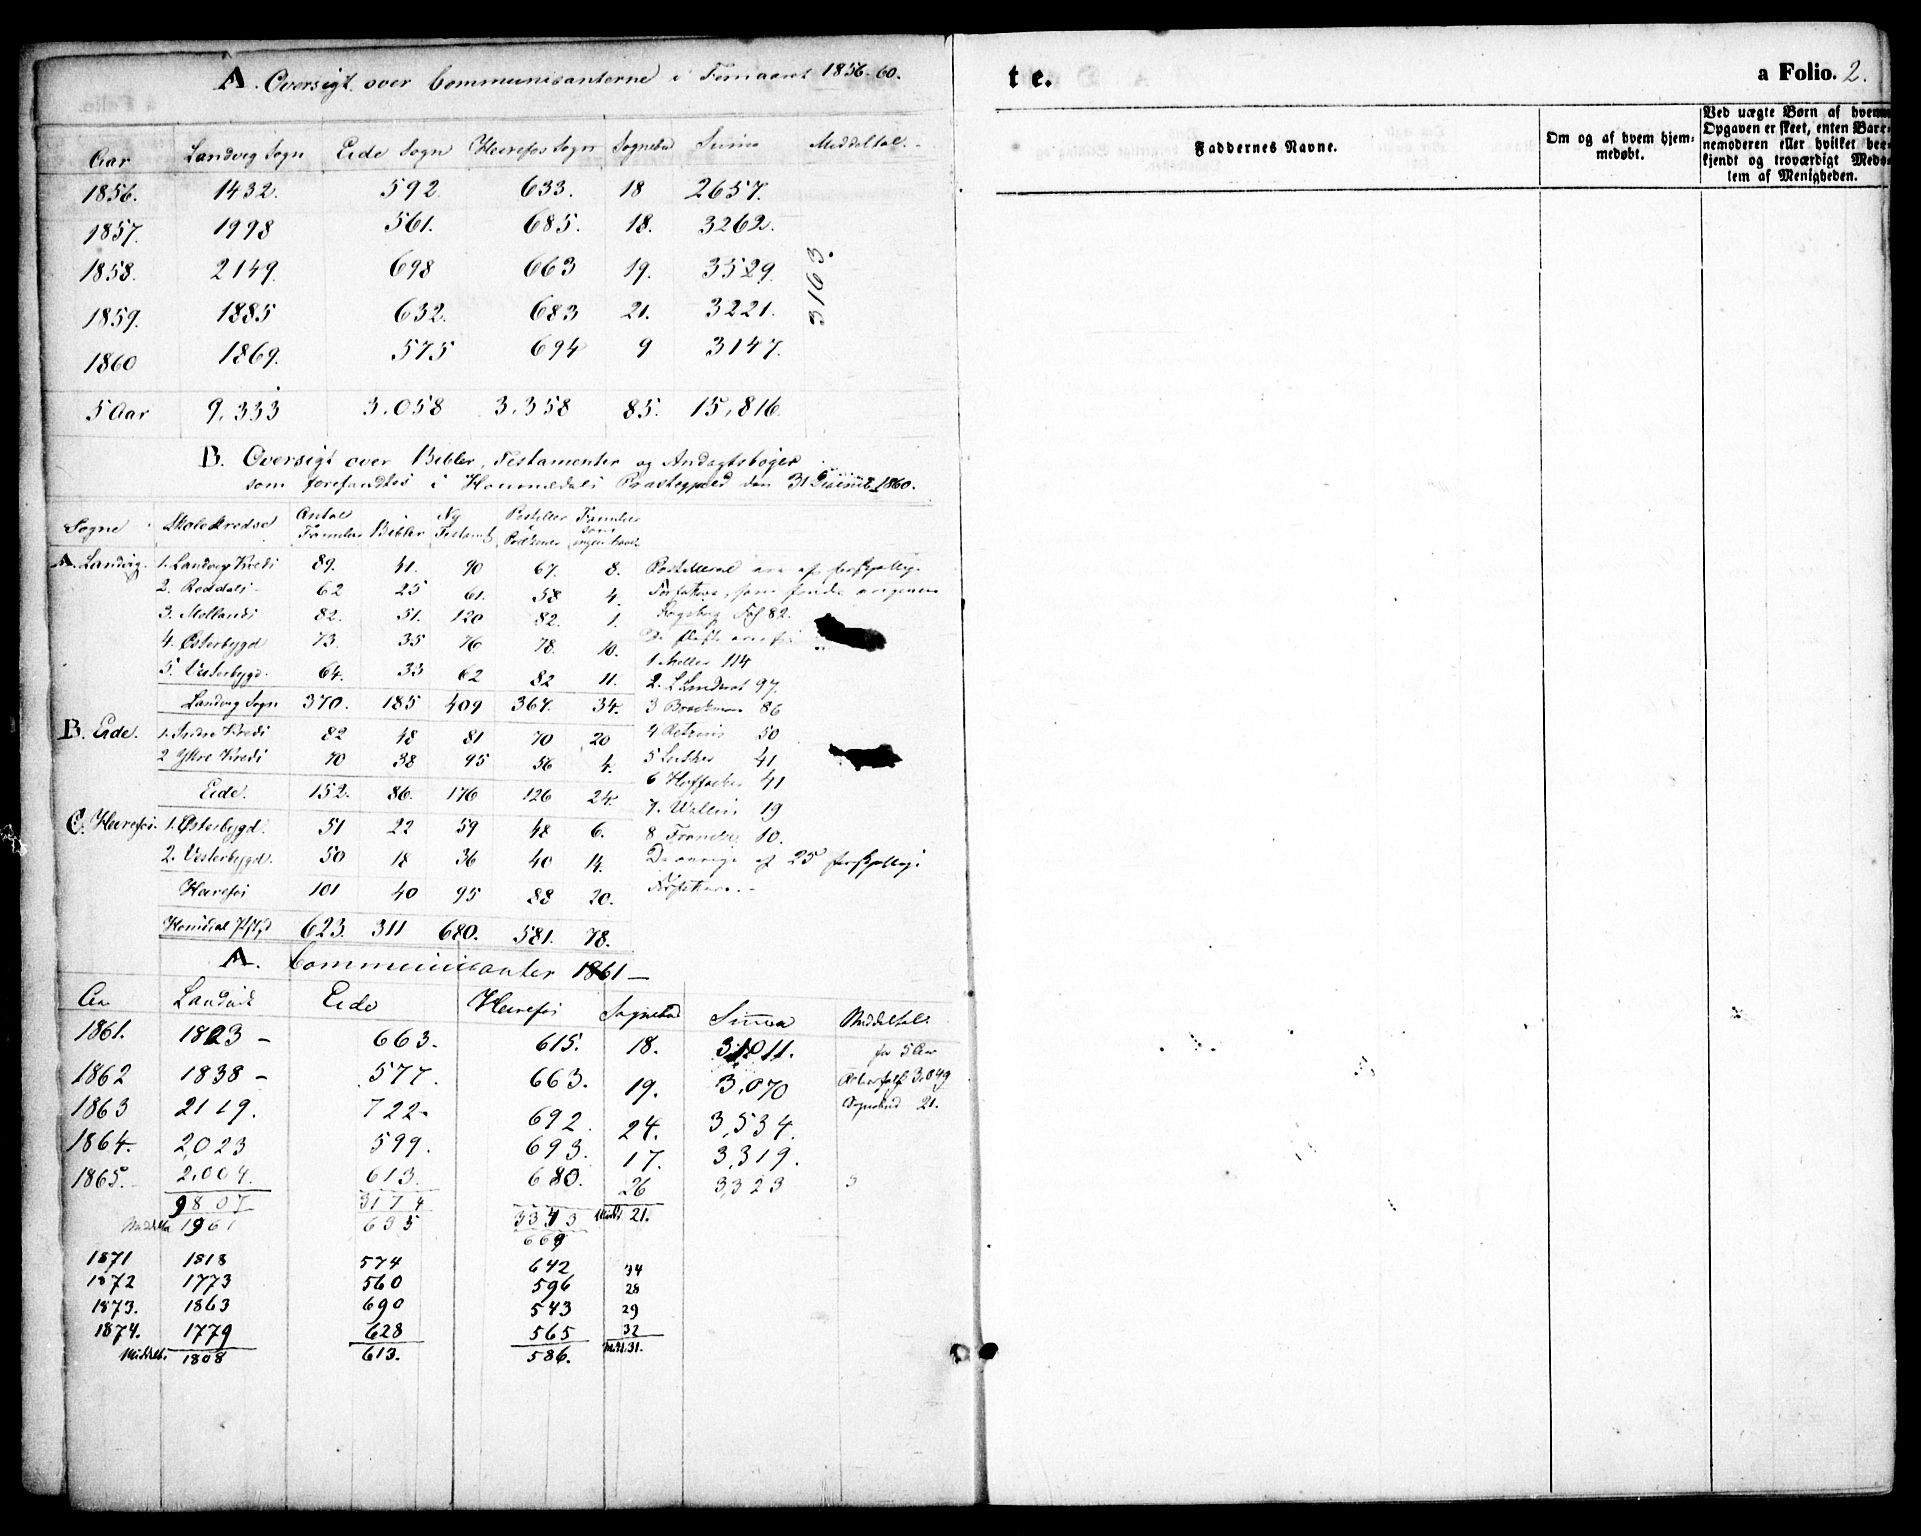 A. Oversigt over Communicanterne i Femaaret 1856-60.
Aar Landvig Sogn Eide Sogn Herefos Sogn Sognebud Suma Middeltal.
1856. 1432. 592 633. 18 2657.
1857. 1998 561. 685. 18. 3262.
1858. 2149. 698 663 19. 3529.
1859. 1885 632. 683 21. 3221.
1860 1869. 575 694 9 3147.
3163.
5 Aar 9,333 3.058 3.358 85. 15,816.
B. Oversigt over Bibler, Testamenter og Andagtsbøger
som forefandtes i Hommedals Præstegjeld den 31 1860.
Sogne Skolekredse Antal Familier Bibler Ny Testamt Postiller Familier som ingen have
A. Landvig. 1. Landvigs Kreds 89. 41. 90 67. 8.
2. Roddals 62 25 61. 58 4.
3. Mollands 82. 51. 120 82. 1.
4. Østerbygd 73. 35 76 78. 10.
5. Vesterbygd. 64. 33 62 82 11.
Landvig Sogn 370. 185 409 367. 34.
B. Eide. 1. Indre Kreds 82 48 81 70 20
2 Ytre Kreds 70 38 95 56 4.
Eide. 152. 86. 176 126 24.
C. Herefos. 1. Østerbygd. 51 22 59 48 6.
2. Vesterbygd. 50 18 36 40 14.
Herefos 101 40 95 88 20.
623. 311 680. 581. 78.
Postillerne ere af forskjellige
Forfattere, som
Fol 82.
De fleste ere fra
1 Møller 114
2. 97.
3 Brochmann 86
4 50
5 Luther 41
6 Hoffacker 41
7. Wallin 19
8 Francke 10.
De øvrige af 25 forskjellige
Forfattere. -
A. Communicanter 1861 —
Aar Landvik Eide Herefos Sognebud Summa Middeltal.
1861. 1823 - 663. 615. 18. 3,011. for 5 Aar
1862 1838 - 577. 663. 19. 3,070 3,049
1863 2119. 722. 692. 24. 3,534. Sognebud 21.
1864. 2,023 599. 693. 17. 3,319.
1865. 2,004. 613. 680. 26 3,323
9807 3174 3343 Midd 21.
Middeltal 1961 635 669
1871 1818 574 642 34
1872 1773 560 596 28
1873. 1863 690 543 29
1874. 1779 628 565 32
Middelt. 1808 613. 586. Mid. 31.
te.
a Folio. 2.
Faddernes Navne.
Om og af hvem hjem-
medøbt.
Ved uægte Børn af hvem
Opgaven er skeet, enten Bar-
nemoderen eller hvilket be-
kjendt og troværdigt Med-
lem af Menigheden.